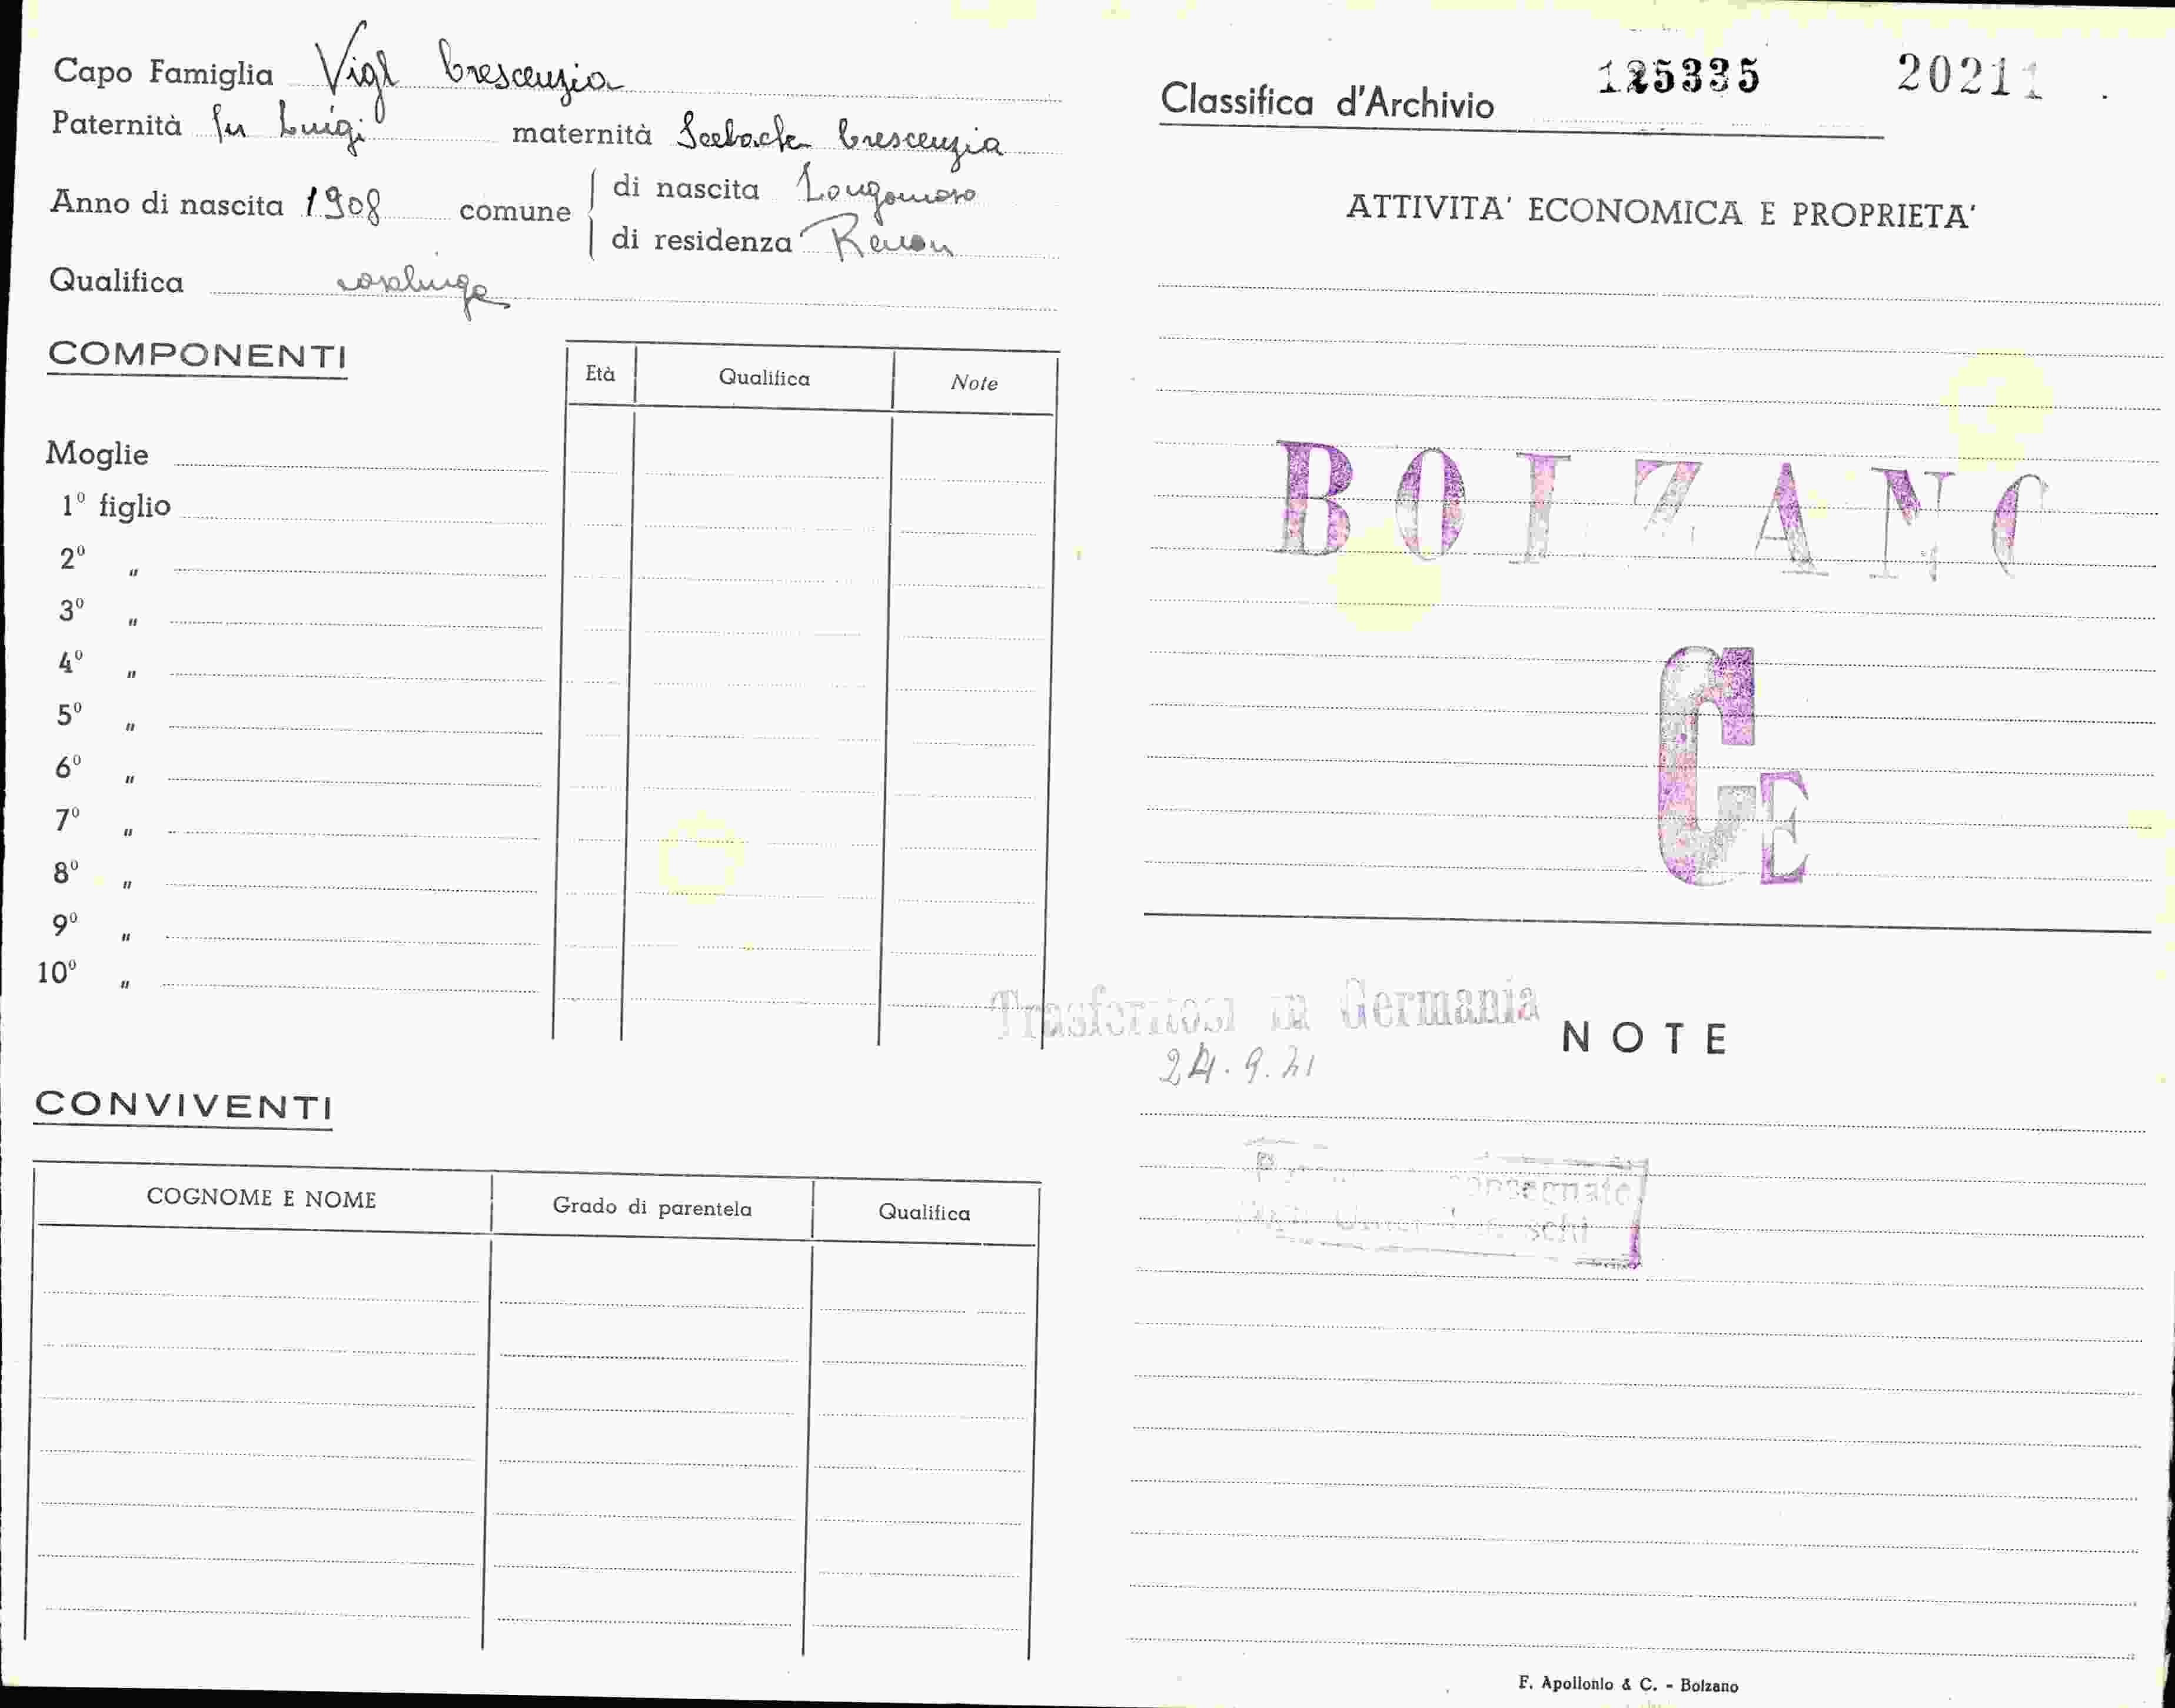 Capo Famiglia Vigl Crescenzia
Paternità fu Luigi maternità Seebacher Crescenzia
Anno di nascita 1908 comune di nascita Longomoso
di residenza Renon
Qualifica casalinga
COMPONENTI
Età Qualifica Note
Moglie
1º figlio
2º "
3º "
4º "
5º "
6º "
7º "
8º "
9º "
10º "
CONVIVENTI
COGNOME E NOME Grado di parentela Qualifica
125335 20211
Classifica d'Archivio
ATTIVITA' ECONOMICA E PROPRIETA'
BOLZANO
GE
Trasferitosi in Germania
24.9.41
NOTE
consegnate
F. Apollonio & C. - Bolzano